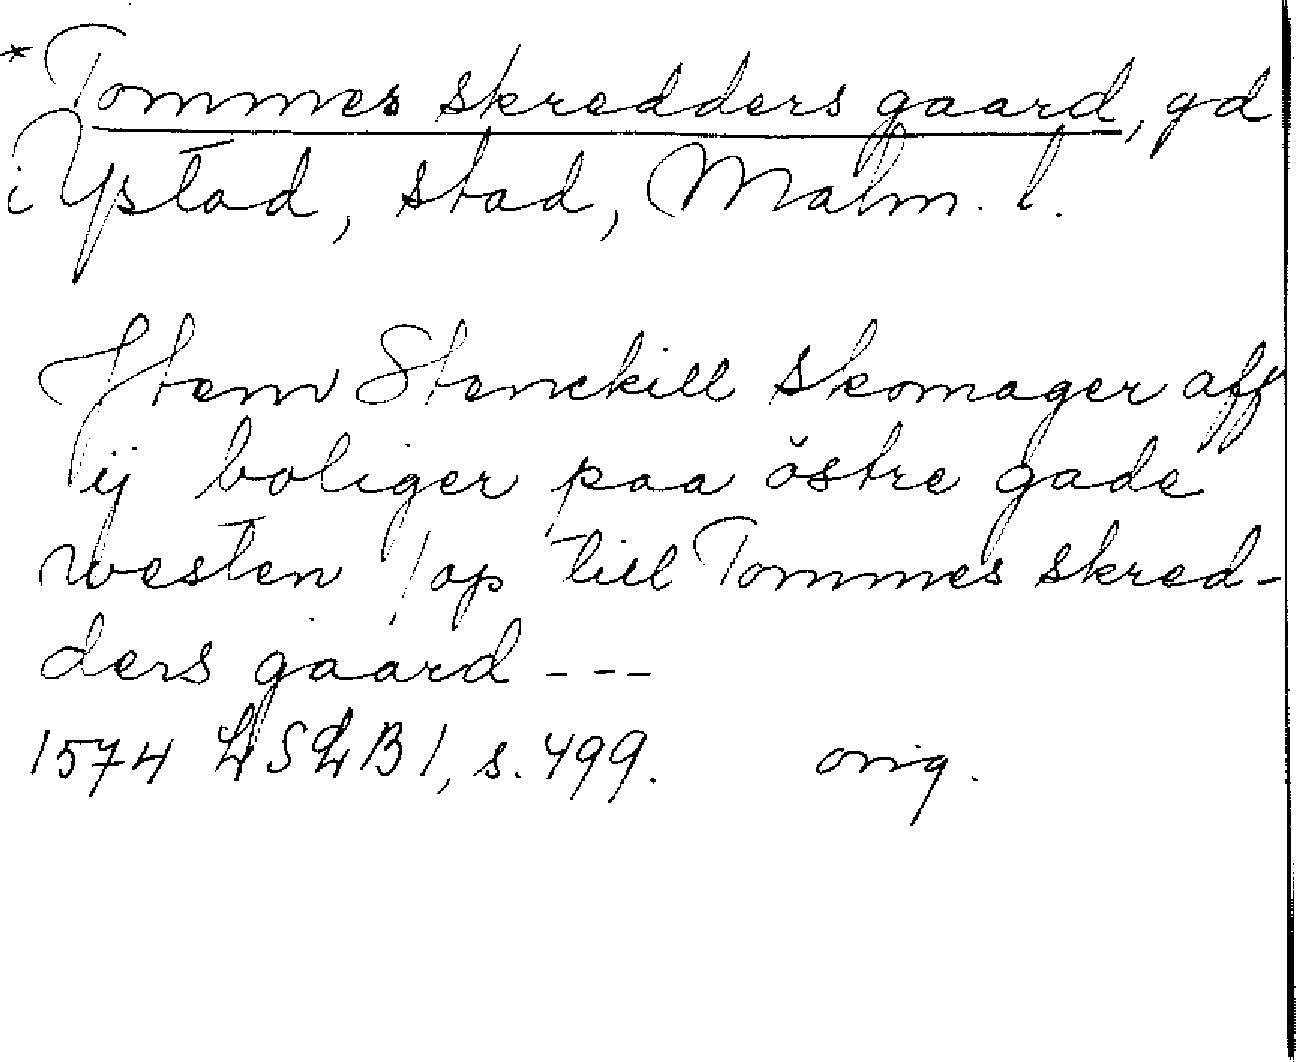 * Tommes skredders gaard, gd
i Ystad, stad, Malm. l.
Jtem Stenckill skomager aff
ij boliger paa östre gade
westen / op till Tommes skred-
ders gaard ---
1574 LSLB 1, s. 499. orig.